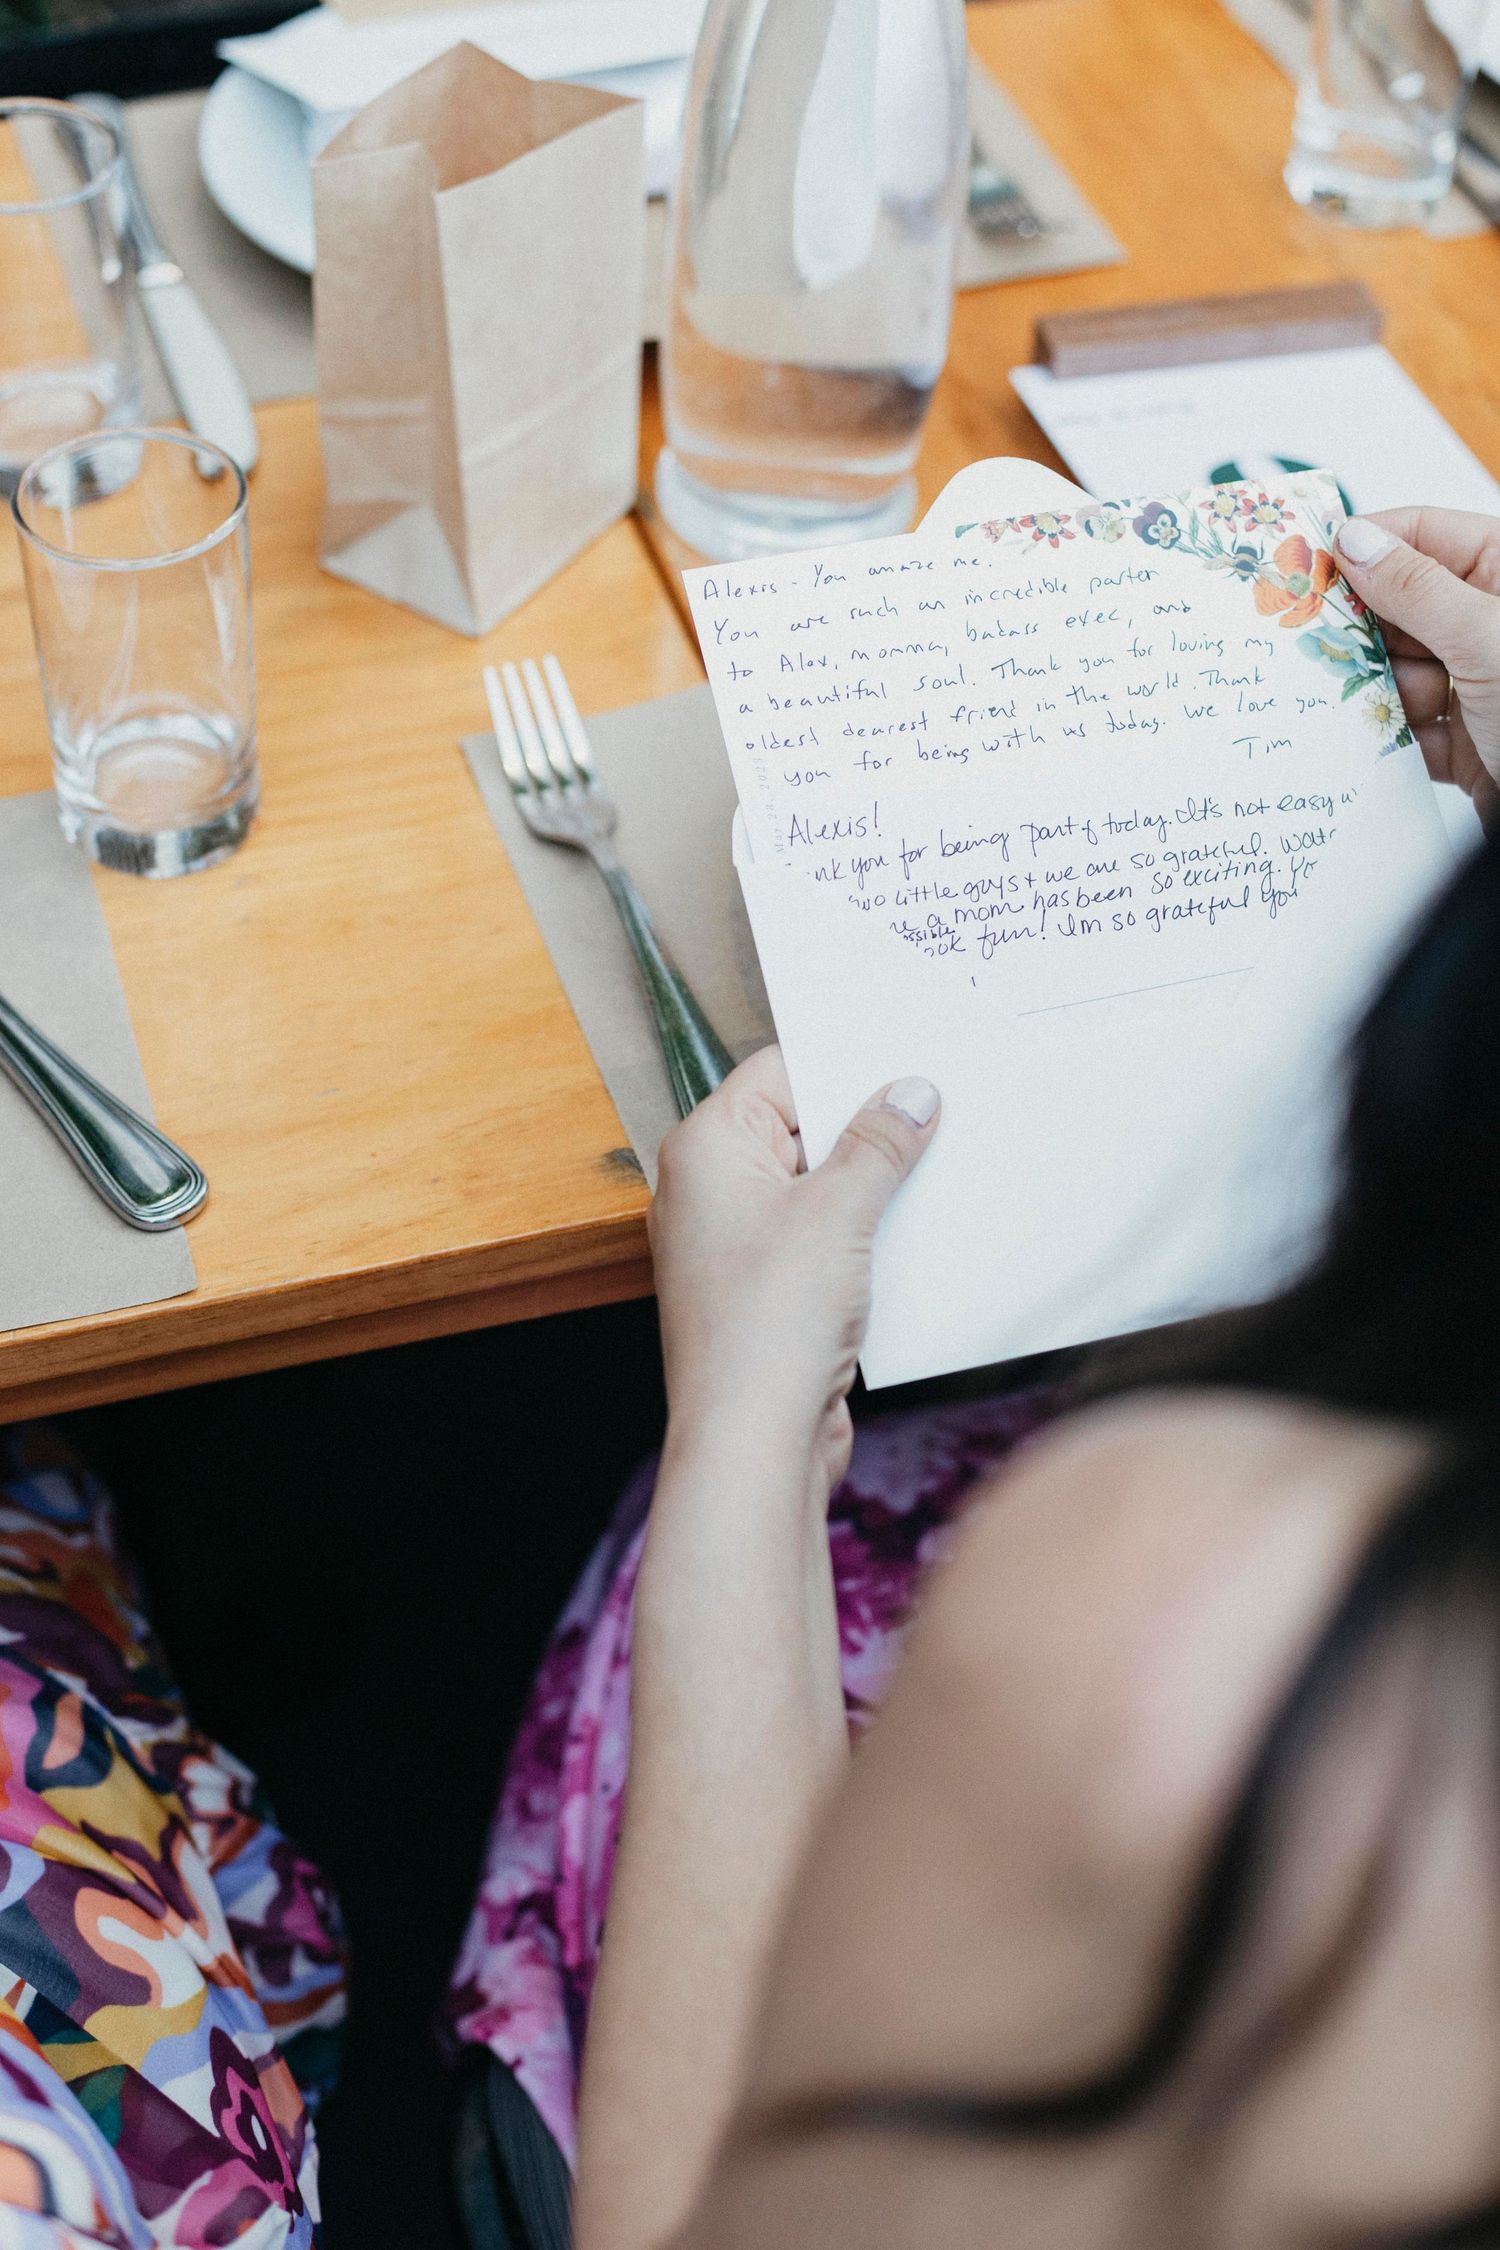 Alexis - You amaze me.
You are such an incredible parter
to Alex, momma, badass exec, and
a beautiful soul. Thank you for loving my
oldest dearest friend in the world. Thank
you for being with us today. We love you.
Tim
May 28, 2023
Alexis!
nk you for being part of today. It's not easy w
wo little guys + we are so grateful. Watc
e a mom has been so exciting. Yo
ssible
ok fun! Im so grateful you